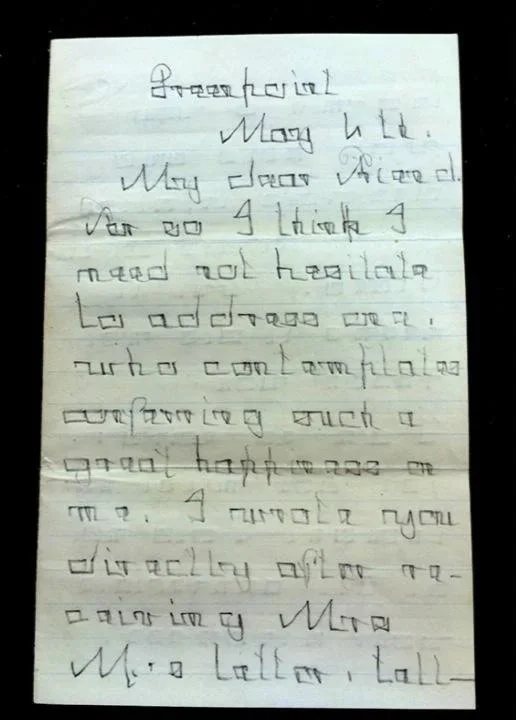 Greenpoint
May 4 th.
My dear Friend.
For so I think I
need not hesitate
to address one,
who contemplates
conferring such a
great happiness on
me. I wrote you
directly after re-
ceiving Mrs
M.'s letter, tell-